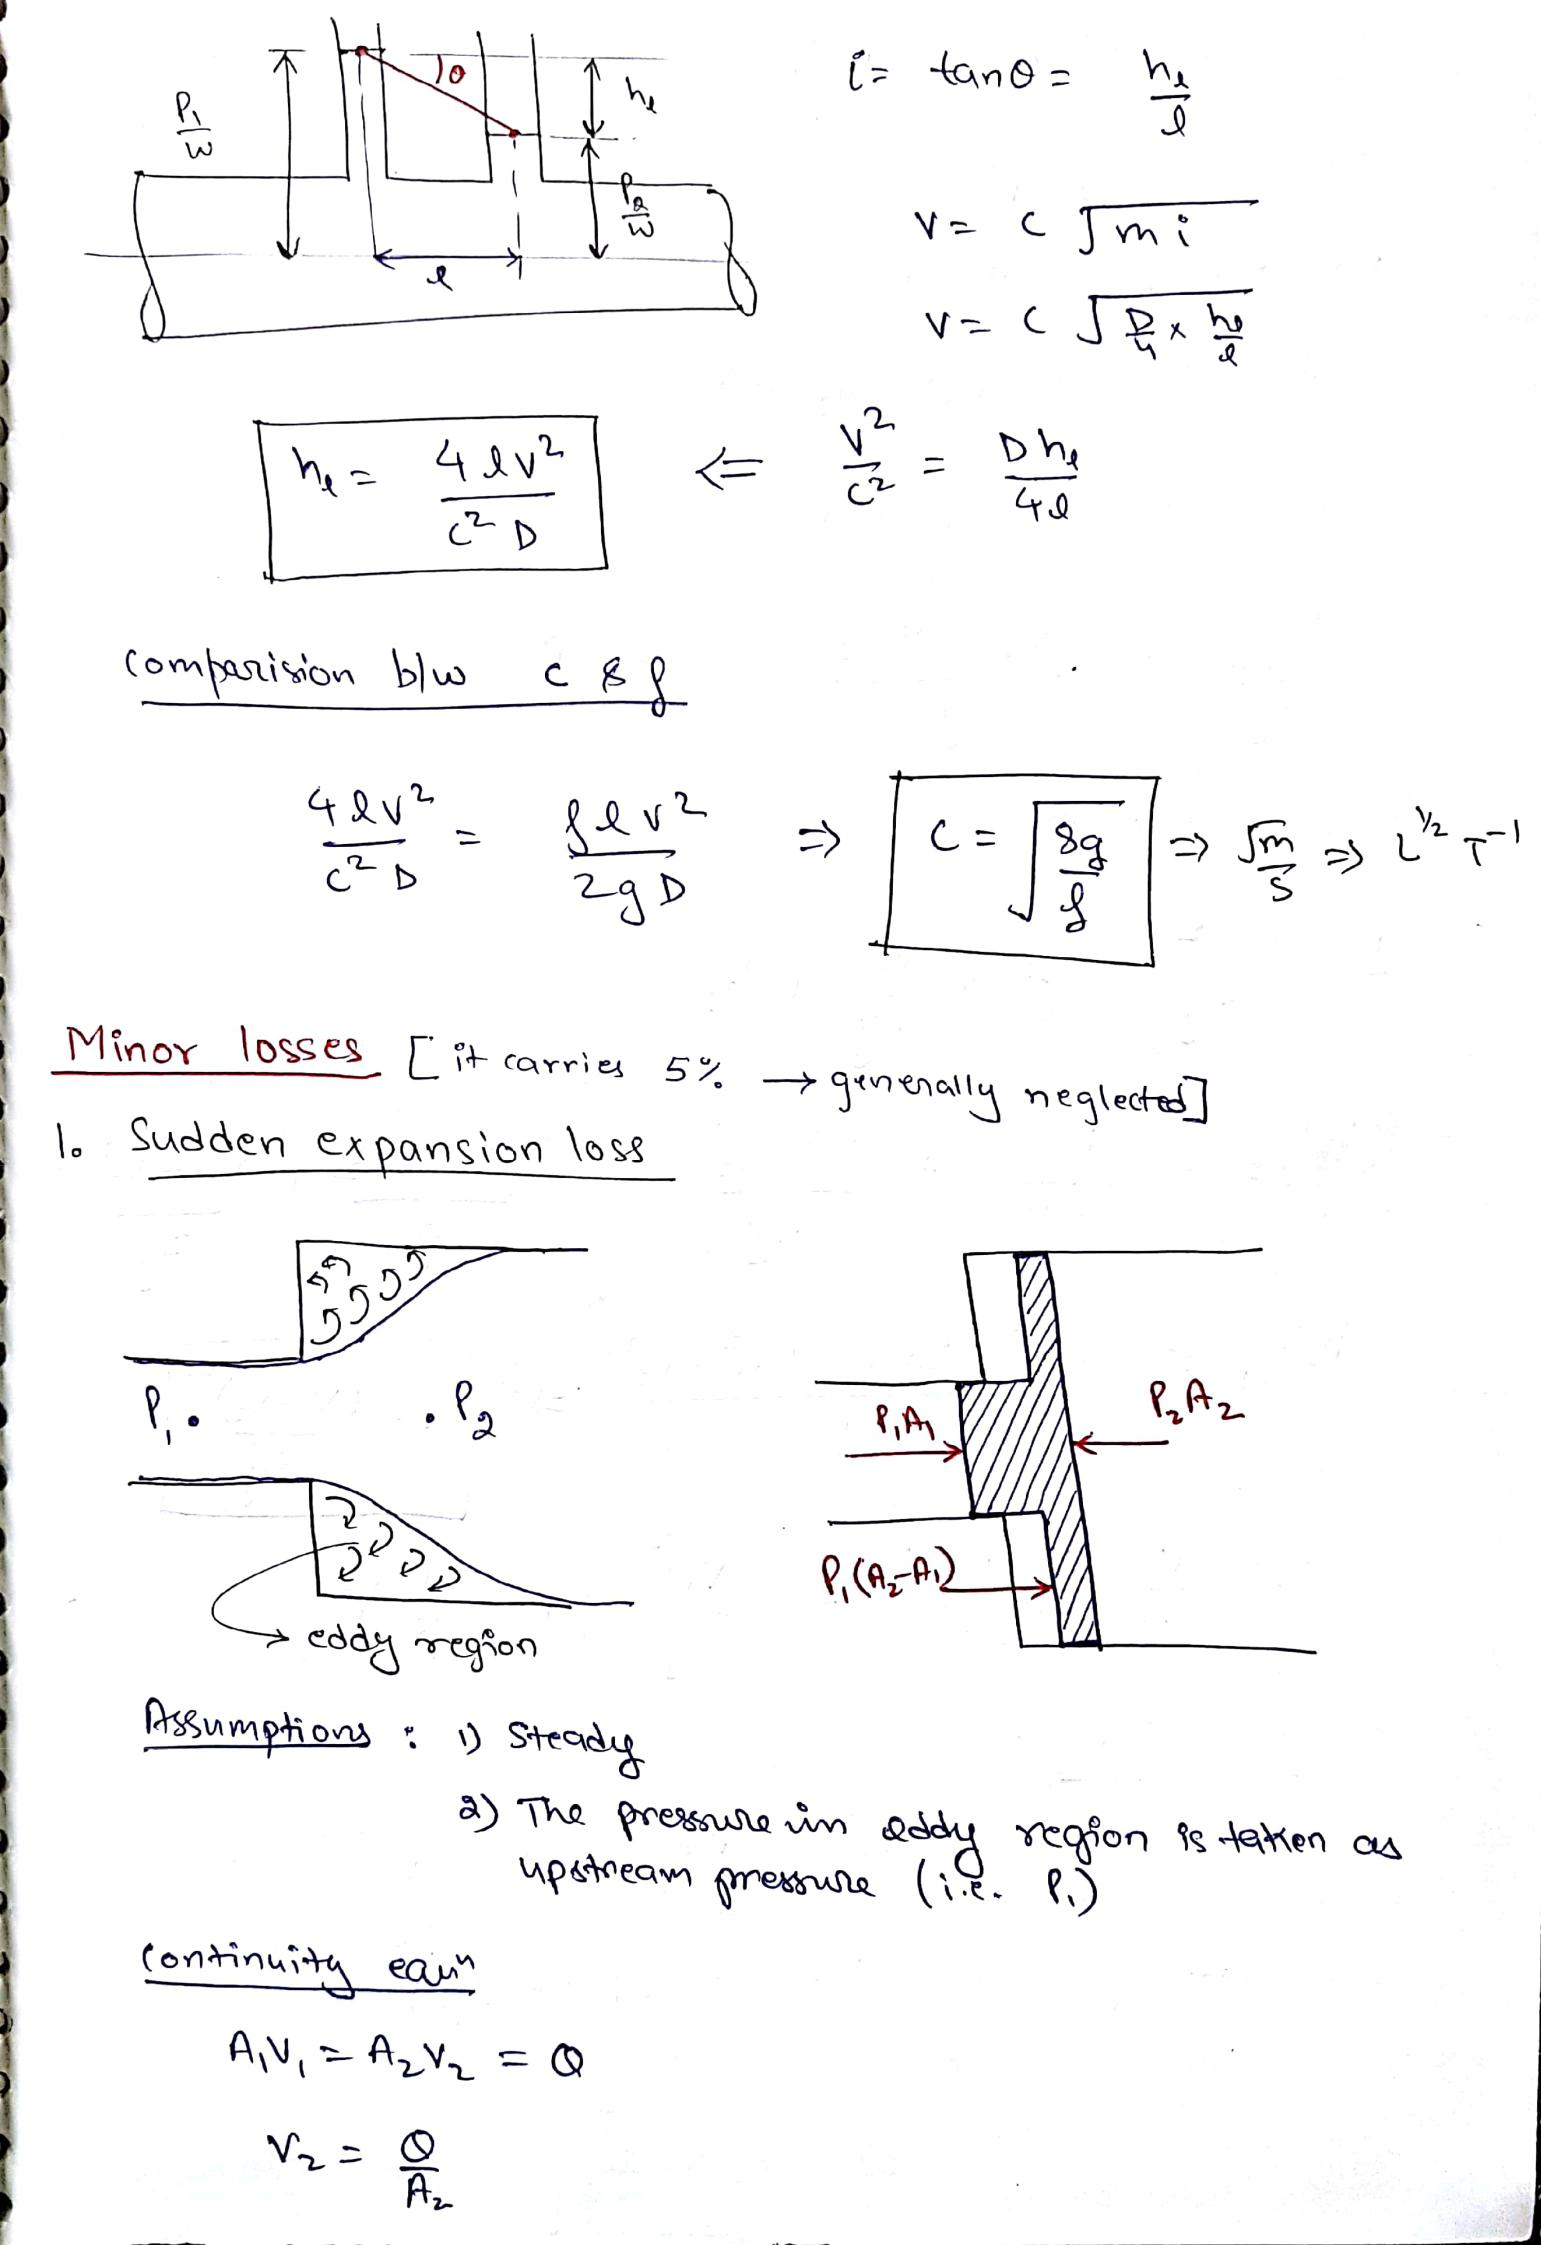 P₁/w
θ
hₗ
P₂/w
l
i = tanθ = hₗ/l
V = C √mi
V = C √(D/4 × hₗ/l)
hₗ = 4lv²/C²D ⇐ V²/C² = Dhₗ/4l
comparision b/w C & f
4lv²/C²D = flv²/2gD ⇒ C = √(8g/f) ⇒ √m/s ⇒ L^1/2 T^-1
Minor losses [it carries 5% → generally neglected]
1. Sudden expansion loss
P₁ . . P₂
P₁A₁
P₂A₂
P₁(A₂-A₁)
→ eddy region
Assumptions : 1) Steady
2) The pressure in eddy region is taken as
upstream pressure (i.e. P₁)
Continuity equⁿ
A₁V₁ = A₂V₂ = Q
V₂ = Q/A₂